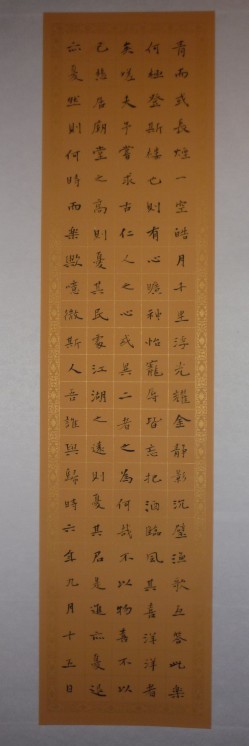 青而或長煙一空皓月千里浮光耀金靜影沉璧漁歌互答此樂
何極登斯樓也則有心曠神怡寵辱皆忘把酒臨風其喜洋洋者
矣嗟夫予嘗求古仁人之心或異二者之為何哉不以物喜不以
己悲居廟堂之高則憂其民處江湖之遠則憂其君是進亦憂退
亦憂然則何時而樂歟噫微斯人吾誰與歸時六年九月十五日